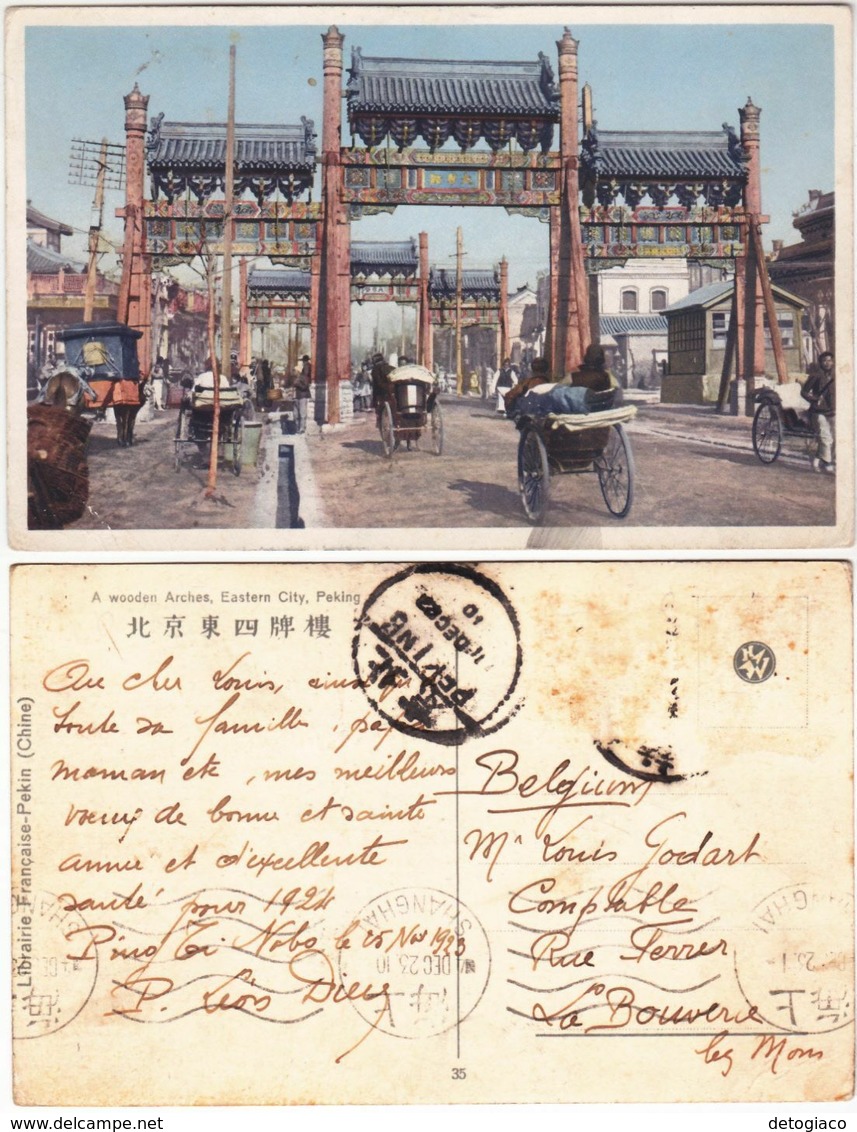 A wooden Arches, Eastern City, Peking
北京東四牌樓
Librairie Française-Pekin (Chine)
PEKING
DEC
10
Au cher Louis, ainsi qu'
toute sa famille, papa
maman etc, mes meilleurs
voeux de bonne et sainte
année et d'excellente
santé pour 1924
le 25 Nov 1923
P. Léos
SHANGHAI
DEC 23.10
上海
35
Belgium
Mr Louis Godart
Comptable
Rue Ferrer
La Bouverie
lez Mons
SHANGHAI
上海
detogiaco